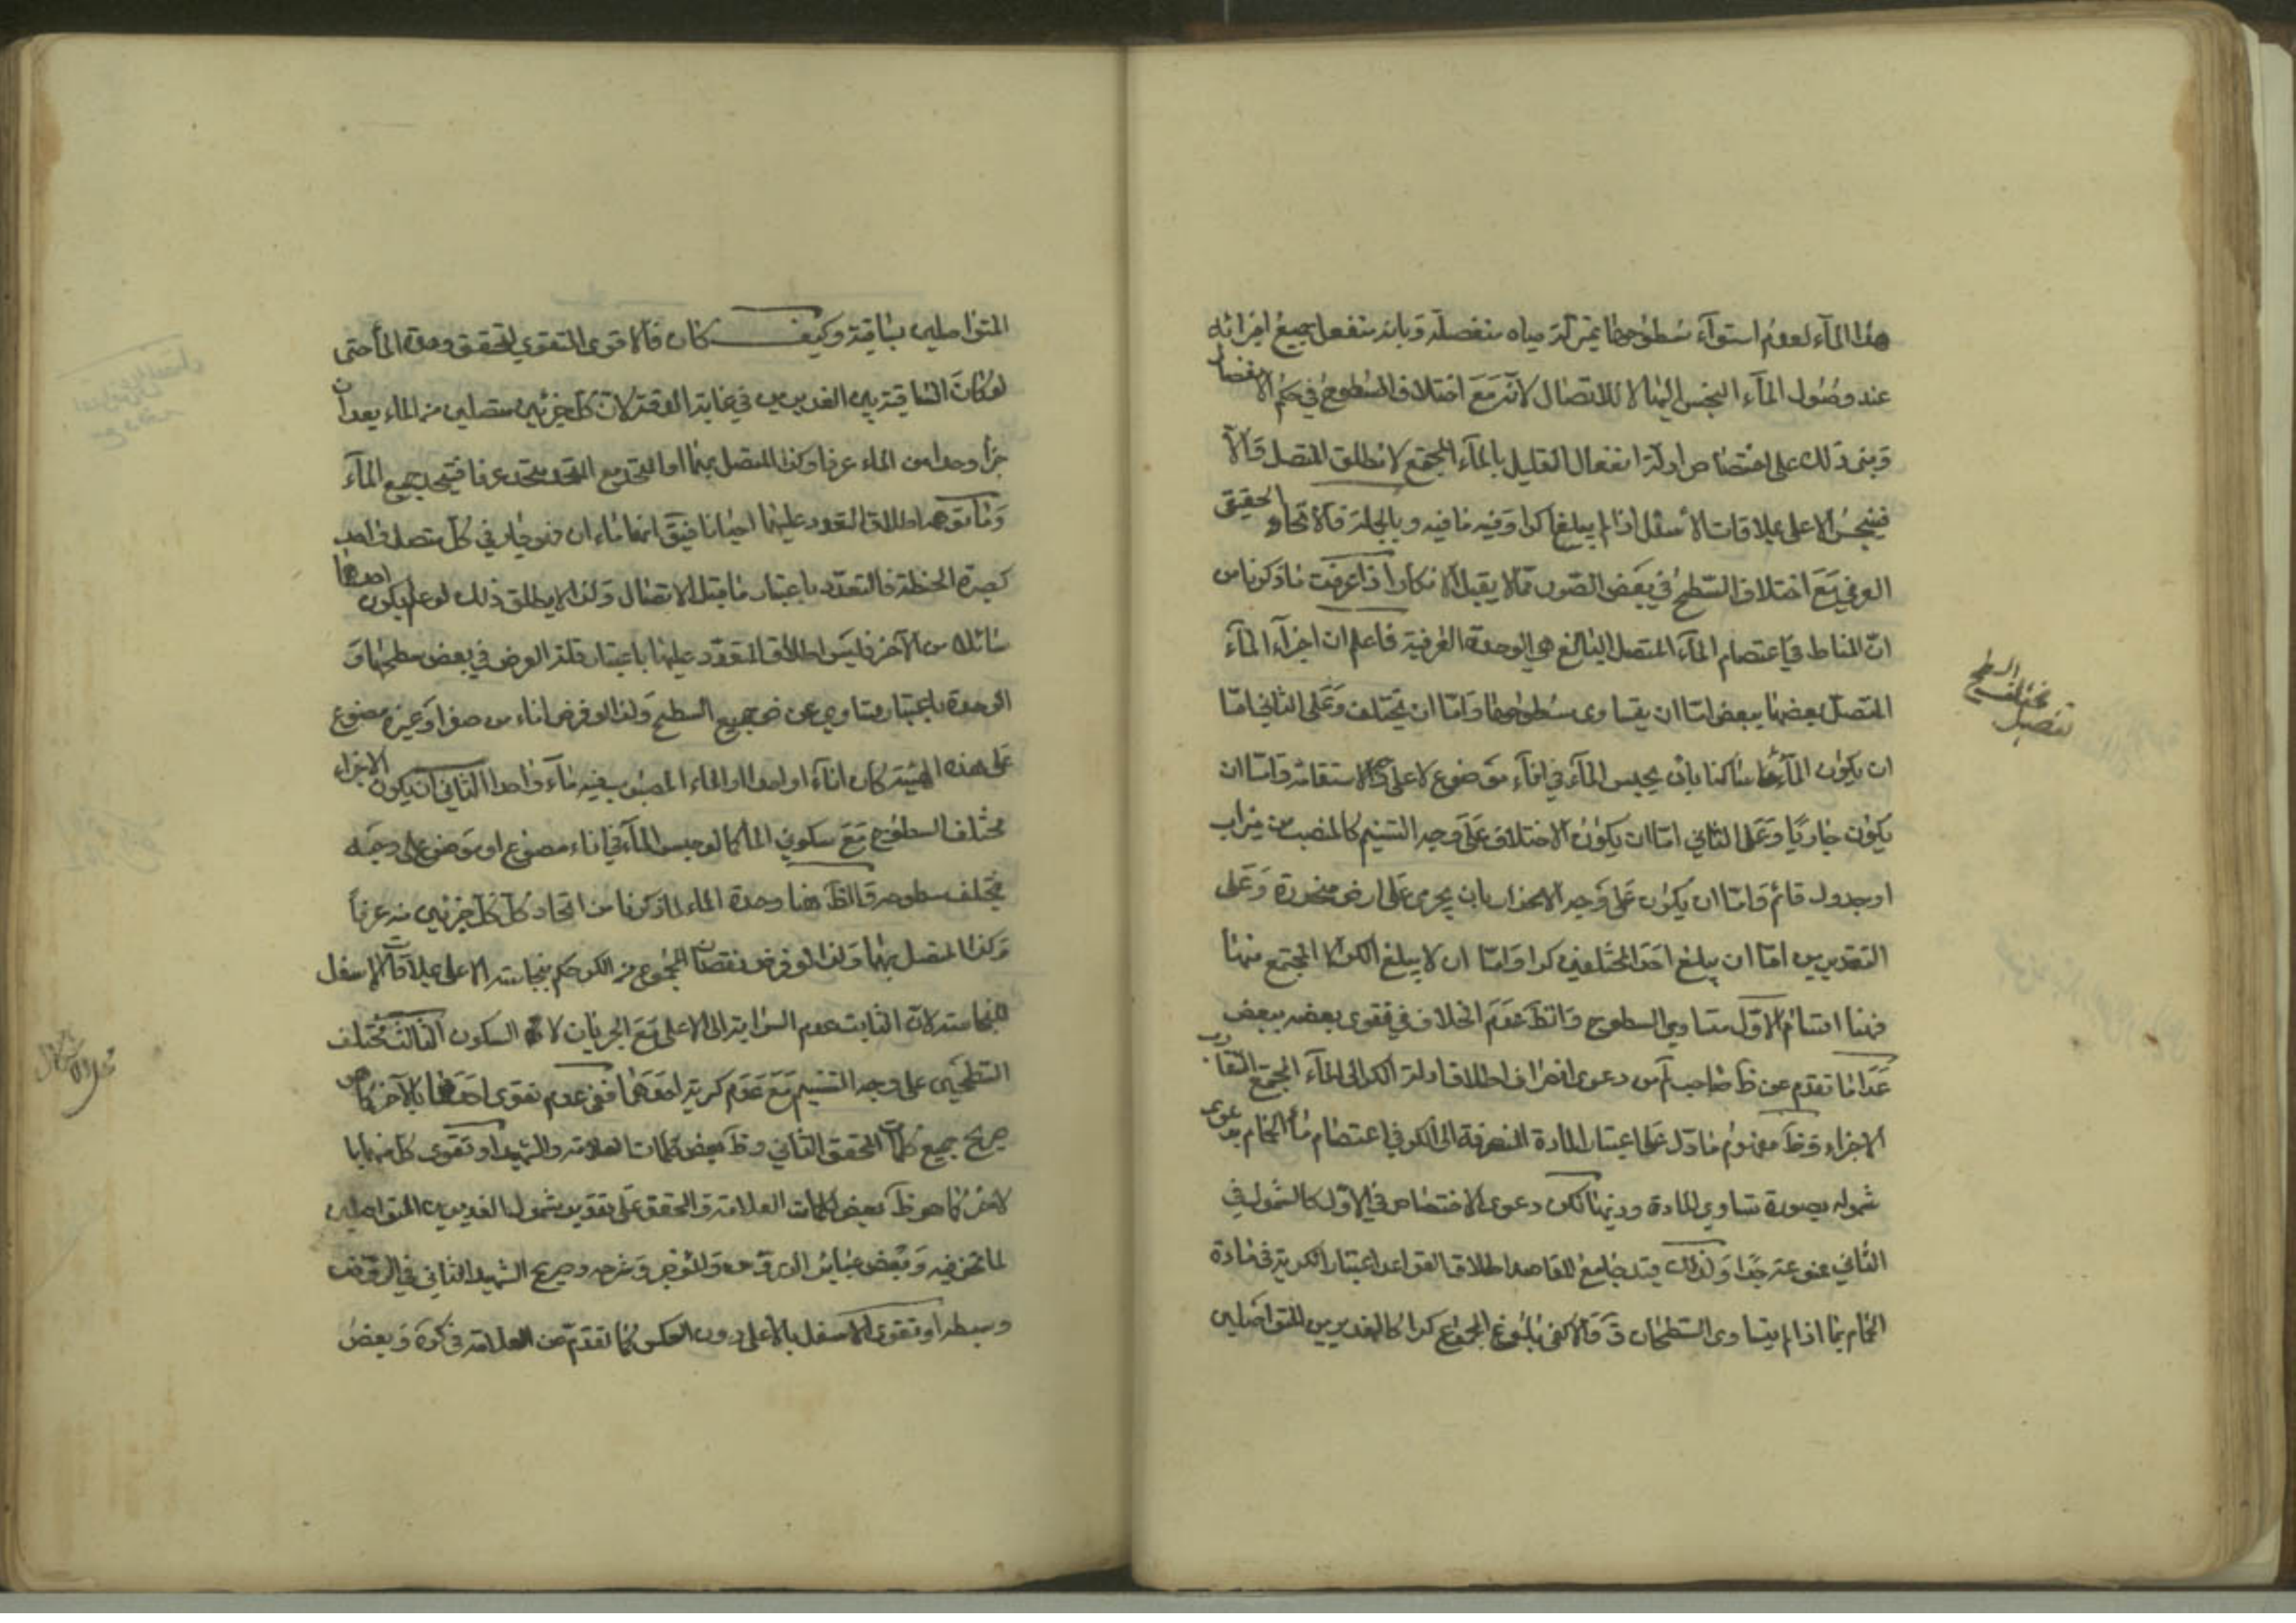 هذا الماء لعدم استواء سطوحها بمنزلة مياه منفصلة وبانه منفعل بجميع اجزائه
عند وصول الماء النجس اليها لا للاتصال لانه مع اختلاف السطوح في حكم الانفصال
وبنى ذلك على اختصاص ادلة انفعال القليل بالماء المجتمع لا مطلق المتصل والا
فينجس الاعلى بملاقات الاسفل اذا لم يبلغا كرا وفيه ما فيه وبالجملة فالاتحاد الحقيقي
العرفي مع اختلاف السطح في بعض الصور مما لا يقبل الانكار اذا عرفت ما ذكرنا من
ان المناط في اعتصام الماء المتصل البالغ هي الوحدة العرفية فاعلم ان اجزاء الماء
المتصل بعضها ببعض اما ان يتساوى سطوحها واما ان يختلف وعلى الثاني اما
ان يكون الماء ساكنا بان يحبس الماء في اناء موضوع لا على وجه الاستقامة واما ان
يكون جاريا وعلى الثاني اما ان يكون الاختلاف على وجه التسنيم كالمنصب من ميزاب
او جدول قائم واما ان يكون على وجه الانحدار بان يجرى على ارض منحدرة وعلى
التقديرين اما ان يبلغ احد المختلفين كرا واما ان لا يبلغ الكر الا المجتمع منهما
فهنا اقسام الاول متساوي السطوح والظ عدم الخلاف في تقوى بعضه ببعض
عدا ما تقدم عن ظ صاحب لم من دعوى انصراف اطلاق ادلة الكر الى الماء المجتمع المتقارب
الاجزاء وظ مفهوم ما دل على اعتبار المادة المنصرفة الى الكر في اعتصام ماء الحمام بدعوى
شموله بصورة تساوي المادة وذيها لكن دعوى الاختصاص في الاول كالشمول في
الثاني ممنوعة جدا ولذلك قيد جامع المقاصد اطلاق القواعد اعتبار الكرية في مادة
الحمام بما اذا لم يتساوى السطحان ق والا كفى بلوغ المجموع كرا كالغديرين المتواصلين
تفصيل
مختلف السطح
المتواصلين بساقية وكيف كان فالاقوى التقوي لتحقق وحدة الماء حتى
لو كانت الساقية بين الغديرين في غاية الدقة لان كل جزئين متصلين من الماء يعدان
جزأ واحدا من الماء عرفا وكذا المتصل بهما اوالمتحد مع المتحد متحد عرفا فيتحد جميع الماء
وما يتوهم اطلاق التعدد عليهما احيانا فيق انهما ماءان فهو جار في كل متصل واحد
كصبرة الحنطة فالتعدد باعتبار ما قبل الاتصال ولذا لا يطلق ذلك لو علم يكون احدهما
سائلا من الآخر فليس اطلاق التعدد عليهما باعتبار قلة العرض في بعض سطحها و
الوحدة باعتبار تساوي عرض جميع السطح ولذا لو فرض اناء من صفر او غيره مصنوع
على هذه الهيئة كان اناء واحدا والماء المصبوب فيه ماء واحدا الثاني ان يكون الاجزاء
مختلف السطوح مع سكون الماء كما لو حبس الماء في اناء مصنوع او موضوع على وجه
يختلف سطوحه والظ هنا وحدة الماء لما ذكرنا من اتحاد كل جزئين منه عرفا
وكذا المتصل بهما ولذا لو فرض نقصان المجموع من الكر حكم بنجاسته الاعلى بملاقات الاسفل
للنجاسة لان الثابت عدم السراية الى الاعلى مع الجريان لا مع السكون الثالث مختلف
السطحين على وجه التسنيم مع عدم كرية احدهما ففي عدم تقوى احدهما بالآخر كما هو
صريح جميع كلمات المحقق الثاني وظ بعض كلمات العلامة والشهيد او تقوى كل منهما با
لآخر كما هو ظ بعض كلمات العلامة والمحقق على تقدير شمول الغديرين المتواصلين
لما نحن فيه وبعض عبائر الدروس والموجز وشرحه وصريح الشهيد الثاني في الروض
وسبطه او تقوى الاسفل بالاعلى دون العكس كما تقدم عن العلامة في كرة وبعض